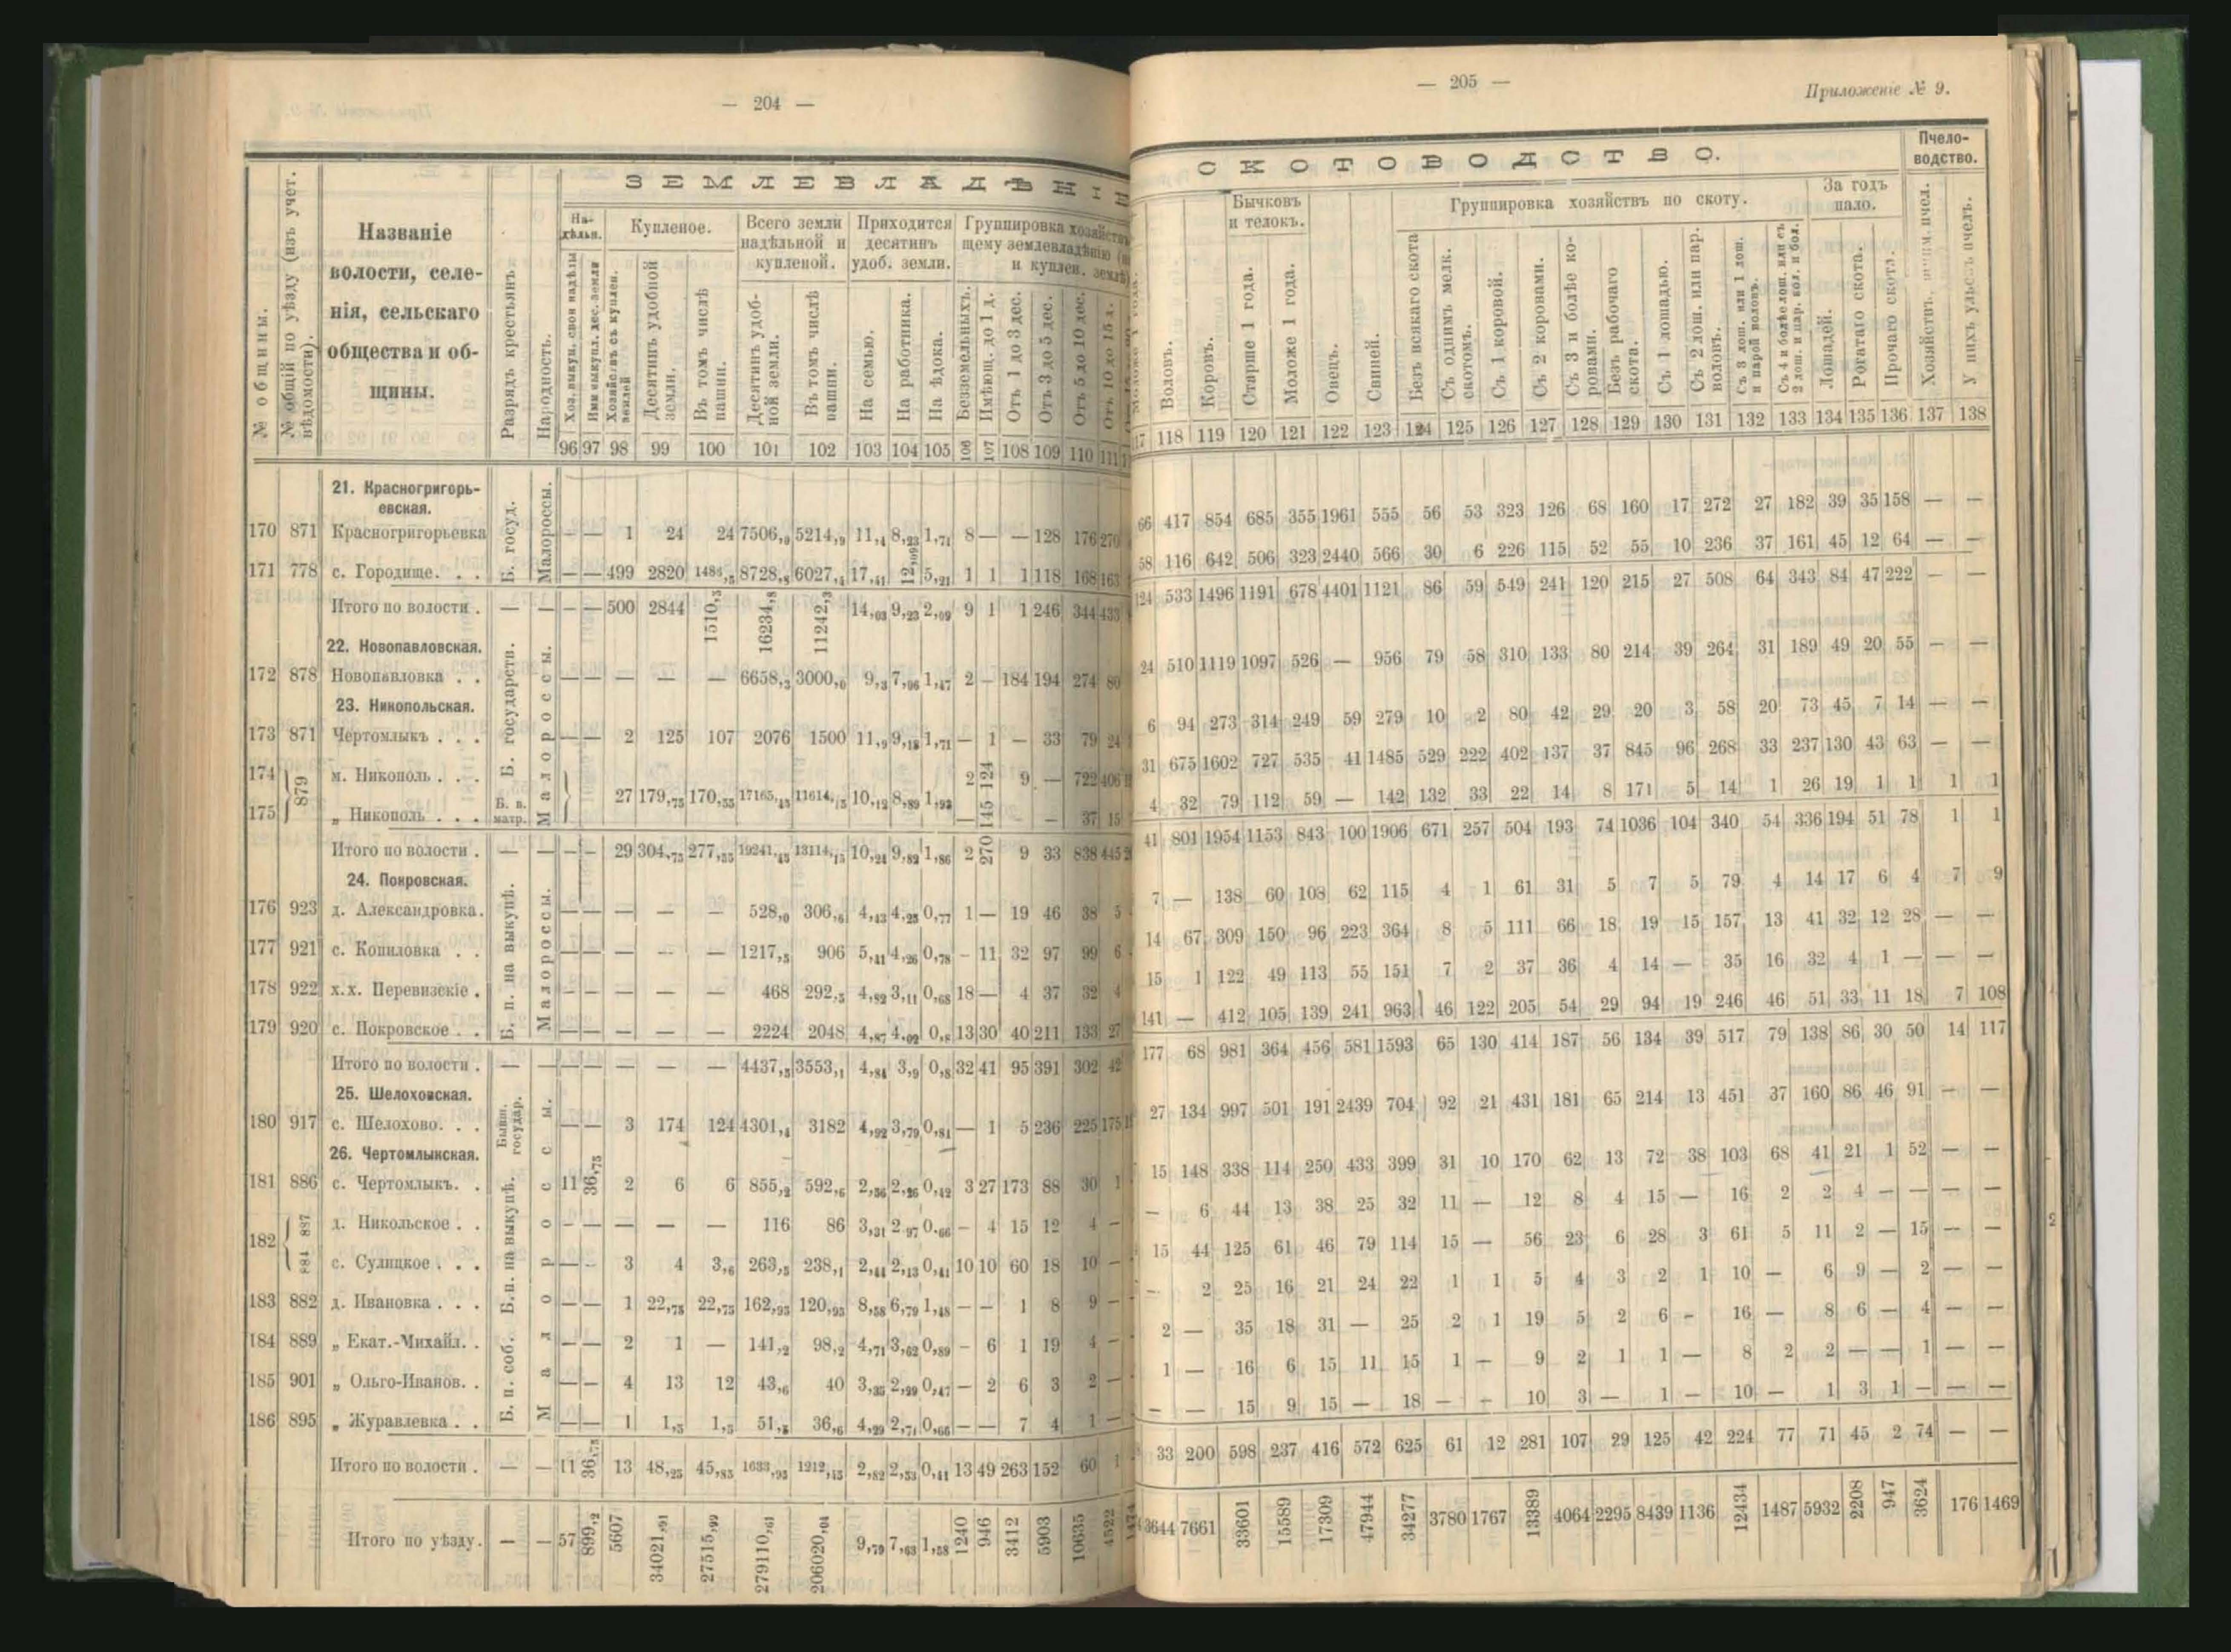 — 204 —
ЗЕМЛЕВЛАДѢНІЕ
№ общины.
№ общій по уѣзду (изъ учет. вѣдомости).
Названіе
волости, селе-
нія, сельскаго
общества и об-
щины.
Разрядъ крестьянъ
Народность.
На-
дѣльн.
Купленое.
Всего земли
надѣльной и
купленой.
Приходится
десятинъ
удоб. земли.
Группировка хозяйствъ
щему землевладѣнію
и куплен. землѣ)
Десятинъ удобной
земли.
Въ томъ числѣ
пашни.
Десятинъ удоб-
ной земли.
Въ томъ числѣ
пашни.
На семью.
На работника.
На ѣдока.
Безземельныхъ.
Имѣющ. до 1 д.
Отъ 1 до 3 дес.
Отъ 3 до 5 дес.
Отъ 5 до 10 дес.
Отъ 10 до 15 д.
96 97 98 99 100 101 102 103 104 105 106 107 108 109 110 111
21. Красногригорь-
евская.
170 871 Красногригорьевка — — 1 24 24 7506,9 5214,9 11,4 8,23 1,71 8 — — 128 176 270
171 778 с. Городище. . . — — 499 2820 1486,5 8728,8 6027,4 17,41 12,09 5,21 1 1 1 118 168 163
Итого по волости . — — — — 500 2844 1510,5 16234,8 11242,3 14,03 9,23 2,09 9 1 1 246 344 433
22. Новопавловская.
172 878 Новопавловка . . — — — — — 6658,3 3000,0 9,3 7,06 1,47 2 — 184 194 274 80
23. Никопольская.
173 871 Чертомлыкъ . . . — — 2 125 107 2076 1500 11,9 9,18 1,71 — 1 — 33 79 24
174 879 м. Никополь . . . 27 179,75 170,55 17165,43 11614,15 10,12 8,89 1,92 2 124 9 — 722 406
175 „ Никополь . . . — 145 — 37 15
Итого по волости . — — — — 29 304,75 277,55 19241,43 13114,15 10,24 9,82 1,86 2 270 9 33 838 445
24. Покровская.
176 923 д. Александровка. — — — — — 528,0 306,6 4,43 4,25 0,77 1 — 19 46 38 5
177 921 с. Копиловка . . — — — — — 1217,5 906 5,41 4,26 0,78 — 11 32 97 99 6
178 922 х.х. Перевизскіе . — — — — — 468 292,5 4,82 3,11 0,68 18 — 4 37 32 4
179 920 с. Покровское . . — — — — — 2224 2048 4,87 4,02 0,8 13 30 40 211 133 27
Итого по волости . — — — — — — — 4437,5 3553,1 4,84 3,9 0,8 32 41 95 391 302 42
25. Шелоховская.
180 917 с. Шелохово. . . — — 3 174 124 4301,4 3182 4,92 3,79 0,81 — 1 5 236 225 175
26. Чертомлыкская.
181 886 с. Чертомлыкъ. . 11 36,75 2 6 6 855,2 592,6 2,56 2,26 0,42 3 27 173 88 30 1
182 887 д. Никольское . . — — — — — 116 86 3,31 2,97 0,66 — 4 15 12 4 —
884 с. Сулицкое . . . — — 3 4 3,6 263,5 238,1 2,44 2,13 0,41 10 10 60 18 10 —
183 882 д. Ивановка . . . — — 1 22,75 22,75 162,95 120,95 8,58 6,79 1,48 — — 1 8 9 —
184 889 „ Екат.-Михайл. . — — 2 1 — 141,2 98,2 4,71 3,62 0,89 — 6 1 19 4 —
185 901 „ Ольго-Иванов. . — — 4 13 12 43,6 40 3,35 2,99 0,47 — 2 6 3 2 —
186 895 „ Журавлевка . . — — 1 1,5 1,5 51,5 36,6 4,29 2,71 0,66 — — 7 4 1 —
Итого по волости . — — 11 36,75 13 48,25 45,85 1633,95 1212,45 2,82 2,53 0,41 13 49 263 152 60 1
Итого по уѣзду. — — 57 899,2 5607 34021,91 27515,99 279110,61 206020,04 9,79 7,63 1,58 1240 946 3412 5903 10635 4522
Б. госуд.
Малороссы.
Б. государств.
Малороссы.
Б. в.
матр.
Б. п. на выкупѣ.
Малороссы.
Бывш.
государ.
Б.п. на выкупѣ.
Б. п. соб.
Малороссы.
— 205 —
Приложеніе № 9.
СКОТОВОДСТВО.
Пчело-
водство.
Бычковъ
и телокъ.
Группировка хозяйствъ по скоту.
За годъ
пало.
Воловъ.
Коровъ.
Старше 1 года.
Моложе 1 года.
Овецъ.
Свиней.
Безъ всякаго скота
Съ однимъ мелк.
скотомъ.
Съ 1 коровой.
Съ 2 коровами.
Съ 3 и болѣе ко-
ровами.
Безъ рабочаго
скота.
Съ 1 лошадью.
Съ 2 лош. или пар.
воловъ.
Съ 3 лош. или 1 лош.
и парой воловъ.
Съ 4 и болѣе лош. или съ
2 лош. и пар. вол. и бол.
Лошадей.
Рогатаго скота.
Прочаго скота.
Хозяйствъ, имѣющ. пчел.
У нихъ ульевъ пчелъ.
17 118 119 120 121 122 123 124 125 126 127 128 129 130 131 132 133 134 135 136 137 138
66 417 854 685 355 1961 555 56 53 323 126 68 160 17 272 27 182 39 35 158 — —
58 116 642 506 323 2440 566 30 6 226 115 52 55 10 236 37 161 45 12 64 — —
124 533 1496 1191 678 4401 1121 86 59 549 241 120 215 27 508 64 343 84 47 222 — —
24 510 1119 1097 526 — 956 79 58 310 133 80 214 39 264 31 189 49 20 55 — —
6 94 273 314 249 59 279 10 2 80 42 29 20 3 58 20 73 45 7 14 — —
31 675 1602 727 535 41 1485 529 222 402 137 37 845 96 268 33 237 130 43 63 — —
4 32 79 112 59 — 142 132 33 22 14 8 171 5 14 1 26 19 1 1 1 1
41 801 1954 1153 843 100 1906 671 257 504 193 74 1036 104 340 54 336 194 51 78 1 1
7 — 138 60 108 62 115 4 1 61 31 5 7 5 79 4 14 17 6 4 7 9
14 67 309 150 96 223 364 8 5 111 66 18 19 15 157 13 41 32 12 28 — —
15 1 122 49 113 55 151 7 2 37 36 4 14 — 35 16 32 4 1 — — —
141 — 412 105 139 241 963 46 122 205 54 29 94 19 246 46 51 33 11 18 7 108
177 68 981 364 456 581 1593 65 130 414 187 56 134 39 517 79 138 86 30 50 14 117
27 134 997 501 191 2439 704 92 21 431 181 65 214 13 451 37 160 86 46 91 — —
15 148 338 114 250 433 399 31 10 170 62 13 72 38 103 68 41 21 1 52 — —
— 6 44 13 38 25 32 11 — 12 8 4 15 — 16 2 2 4 — — — —
15 44 125 61 46 79 114 15 — 56 23 6 28 3 61 5 11 2 — 15 — —
— 2 25 16 21 24 22 1 1 5 4 3 2 1 10 — 6 9 — 2 — —
2 — 35 18 31 — 25 2 1 19 5 2 6 — 16 — 8 6 — 4 — —
1 — 16 6 15 11 15 1 — 9 2 1 1 — 8 2 2 — — 1 — —
— — 15 9 15 — 18 — — 10 3 — 1 — 10 — 1 3 1 — — —
33 200 598 237 416 572 625 61 12 281 107 29 125 42 224 77 71 45 2 74 — —
3644 7661 33601 15589 17309 47944 34277 3780 1767 13389 4064 2295 8439 1136 12434 1487 5932 2208 947 3624 176 1469